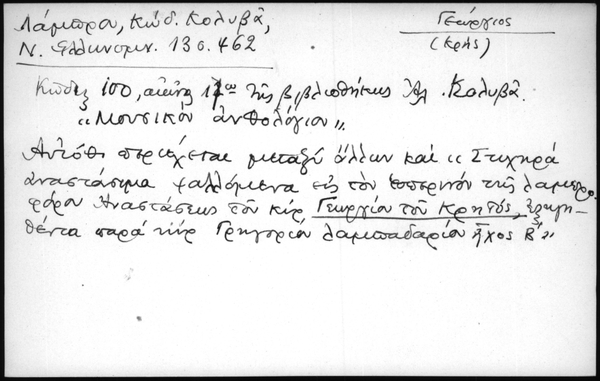 Λάμπρου, Κώδ. Κολυβᾶ,
Ν. Ἑλληνομν. 13 σ. 462
Γεώργιος
(Κρής)
Κῶδιξ 100, αἰῶνος 17ου τῆς βιβλιοθήκης Ἀλ. Κολυβᾶ.
"Μουσικὸν ἀνθολόγιον".
Αὐτόθι περιέχεται μεταξὺ ἄλλων καὶ "Στιχηρὰ
ἀναστάσιμα ψαλλόμενα εἰς τὸν ἑσπερινὸν τῆς λαμπρο-
φόρου Ἀναστάσεως τοῦ κὺρ Γεωργίου τοῦ Κρητός, ἐξηγη-
θέντα παρὰ κὺρ Γρηγορίου λαμπαδαρίου ἦχος Β'"